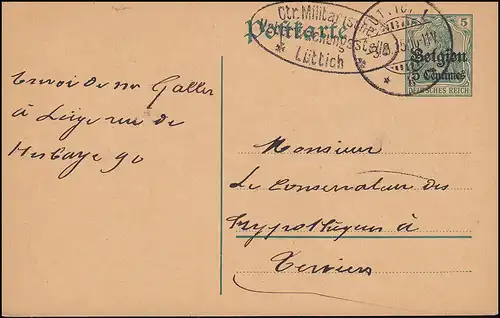 Postkarte
Ctr. Militärische
Lüttich
5
Belgien
5 Centimes
DEUTSCHES REICH
Envoi de Mr Galler
à Liège rue de
Hesbaye 90
Monsieur
Le Conservateur des
Hypothèques à
Verviers